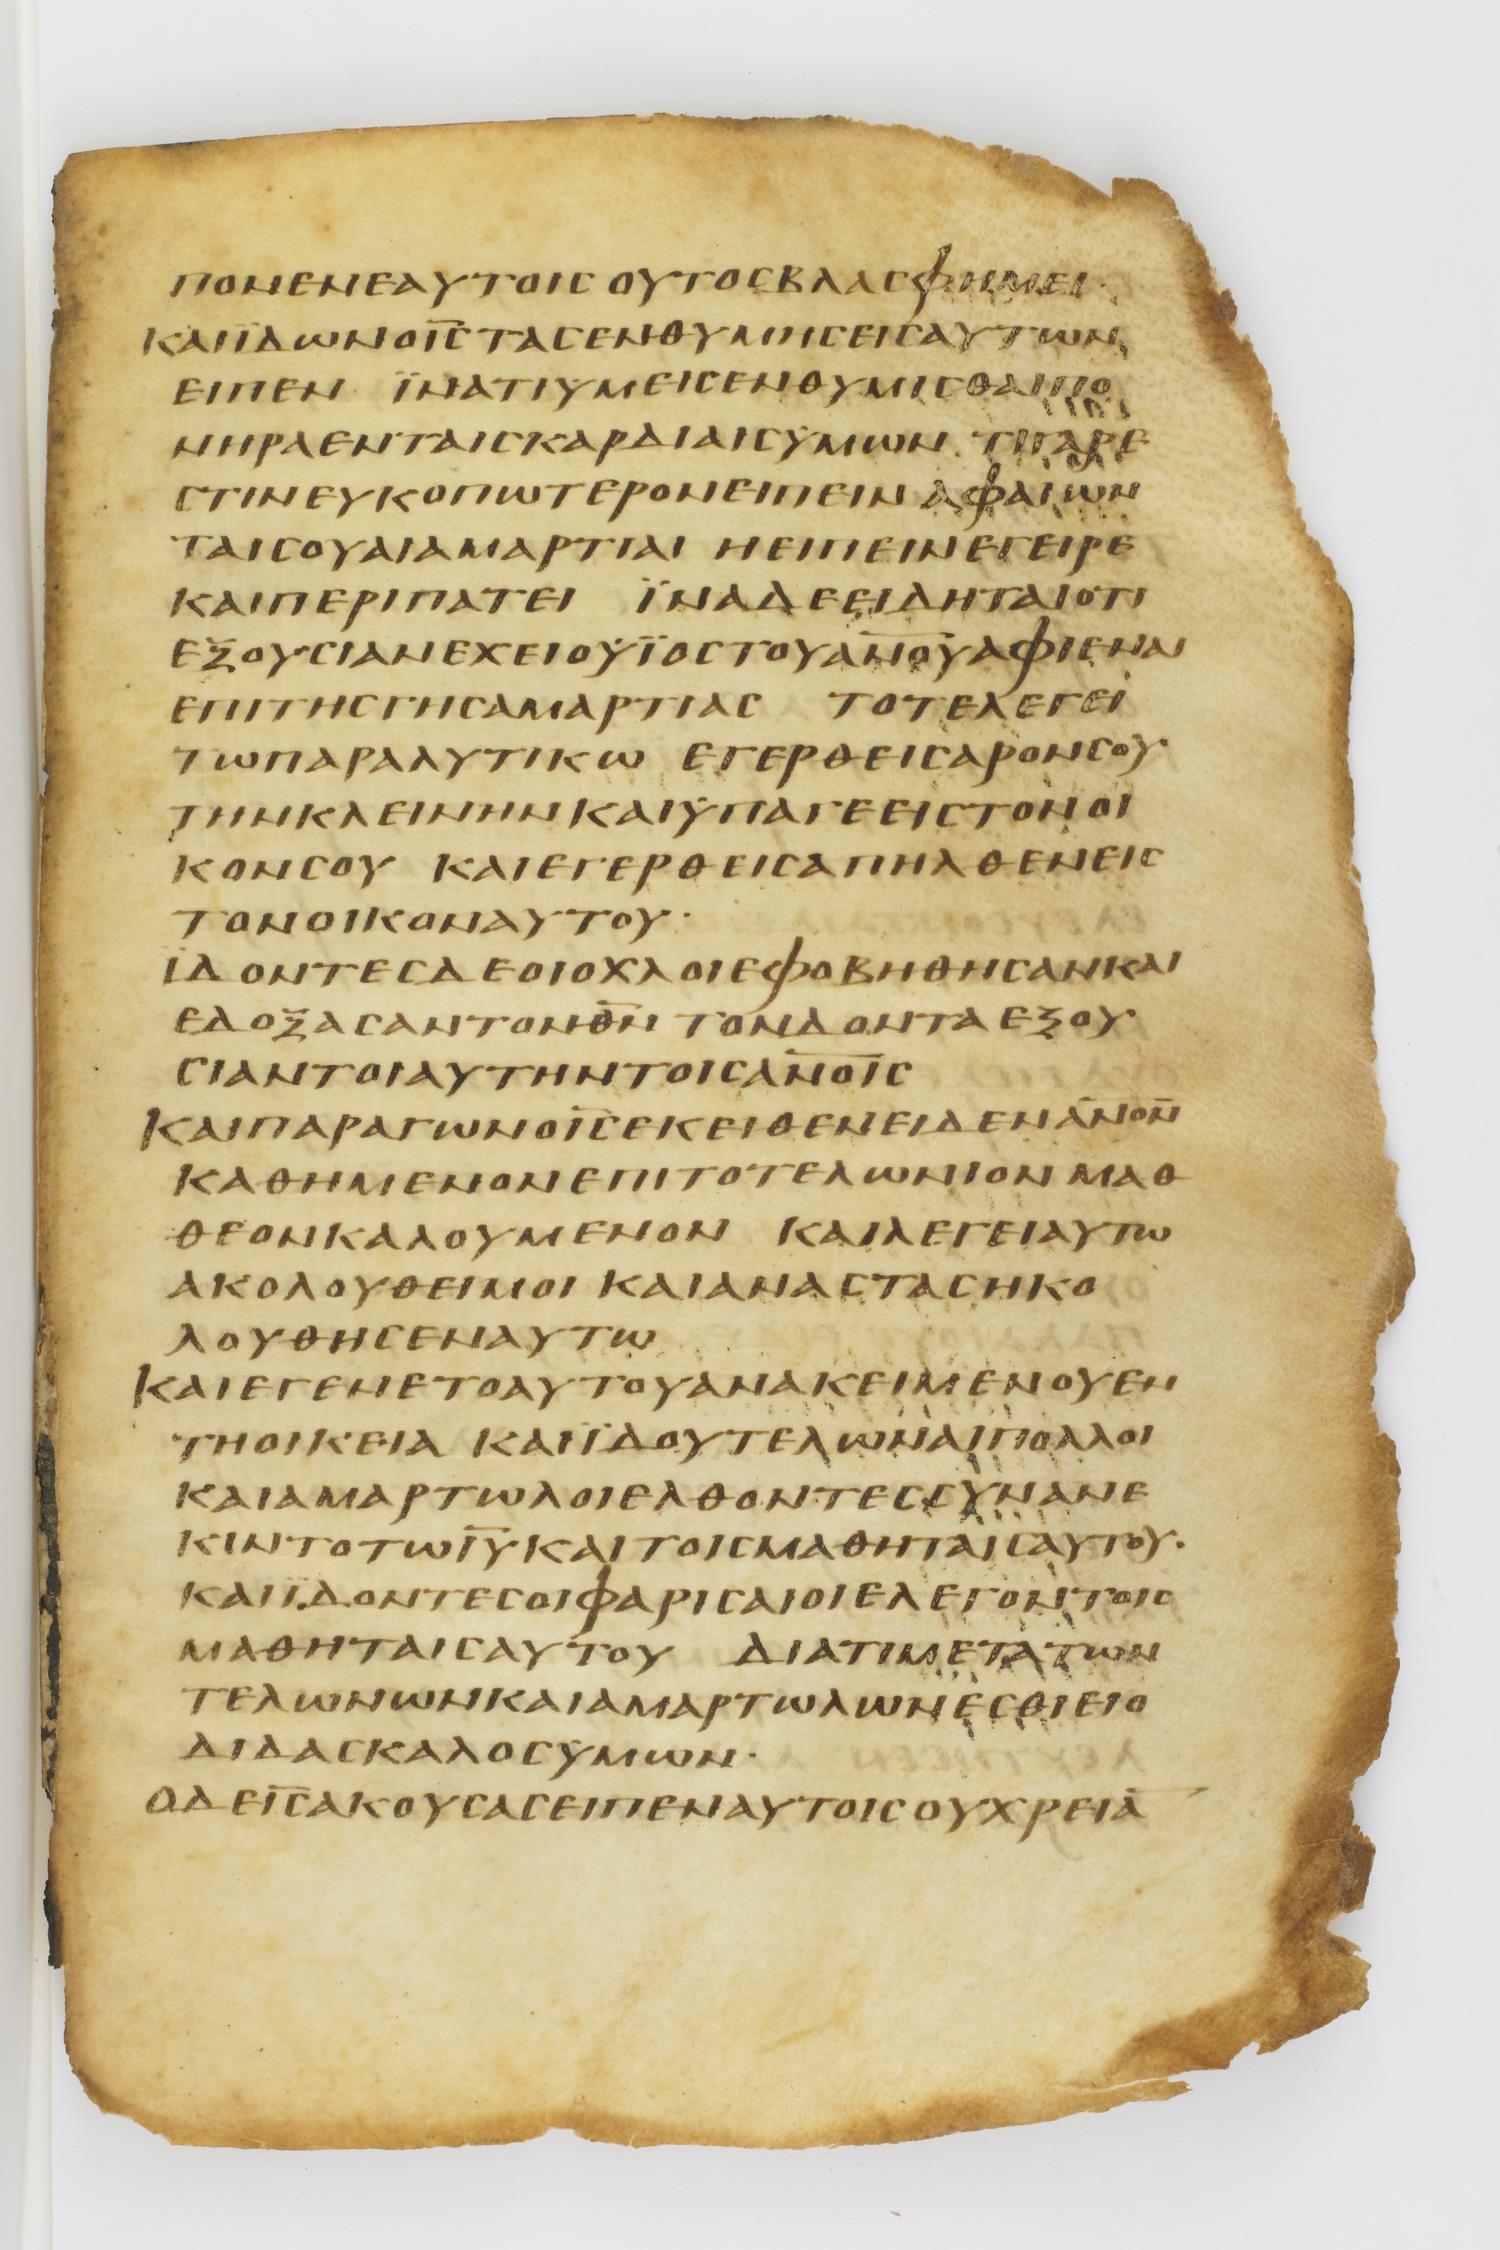 ΠΟΝΕΝΕΑΥΤΟΙϹ ΟΥΤΟϹΒΛΑϹΦΗΜΕΙ·
ΚΑΙΪΔΩΝΟΙ̅Ϲ̅ΤΑϹΕΝΘΥΜΗϹΕΙϹΑΥΤΩΝ
ΕΙΠΕΝ ΪΝΑΤΙΫΜΕΙϹΕΝΘΥΜΙϹΘΑΙΠΟ
ΝΗΡΑΕΝΤΑΙϹΚΑΡΔΙΑΙϹΫΜΩΝ ΤΙΓΑΡΕ
ϹΤΙΝΕΥΚΟΠΩΤΕΡΟΝΕΙΠΕΙΝ ΑΦΑΙΩΝ
ΤΑΙϹΟΥΑΙΑΜΑΡΤΙΑΙ ΗΕΙΠΕΙΝΕΓΕΙΡΕ
ΚΑΙΠΕΡΙΠΑΤΕΙ ΪΝΑΔΕΕΙΔΗΤΑΙΟΤΙ
ΕΞΟΥϹΙΑΝΕΧΕΙΟΫΪΟϹΤΟΥΑ̅Ν̅Ο̅Υ̅ΑΦΙΕΝΑΙ
ΕΠΙΤΗϹΓΗϹΑΜΑΡΤΙΑϹ ΤΟΤΕΛΕΓΕΙ
ΤΩΠΑΡΑΛΥΤΙΚΩ ΕΓΕΡΘΕΙϹΑΡΟΝϹΟΥ
ΤΗΝΚΛΕΙΝΗΝΚΑΙΫΠΑΓΕΕΙϹΤΟΝΟΙ
ΚΟΝϹΟΥ ΚΑΙΕΓΕΡΘΕΙϹΑΠΗΛΘΕΝΕΙϹ
ΤΟΝΟΙΚΟΝΑΥΤΟΥ·
ΙΔΟΝΤΕϹΔΕΟΙΟΧΛΟΙΕΦΟΒΗΘΗϹΑΝΚΑΙ
ΕΔΟΞΑϹΑΝΤΟΝΘ̅Ν̅ ΤΟΝΔΟΝΤΑΕΞΟΥ
ϹΙΑΝΤΟΙΑΥΤΗΝΤΟΙϹΑ̅Ν̅Ο̅Ι̅Ϲ̅
ΚΑΙΠΑΡΑΓΩΝΟΙ̅Ϲ̅ΕΚΕΙΘΕΝΕΙΔΕΝΑ̅Ν̅Ο̅Ν̅
ΚΑΘΗΜΕΝΟΝΕΠΙΤΟΤΕΛΩΝΙΟΝΜΑΘ
ΘΕΟΝΚΑΛΟΥΜΕΝΟΝ ΚΑΙΛΕΓΕΙΑΥΤΩ
ΑΚΟΛΟΥΘΕΙΜΟΙ ΚΑΙΑΝΑϹΤΑϹΗΚΟ
ΛΟΥΘΗϹΕΝΑΥΤΩ
ΚΑΙΕΓΕΝΕΤΟΑΥΤΟΥΑΝΑΚΕΙΜΕΝΟΥΕΝ
ΤΗΟΙΚΕΙΑ ΚΑΙΪΔΟΥΤΕΛΩΝΑΙΠΟΛΛΟΙ
ΚΑΙΑΜΑΡΤΩΛΟΙΕΛΘΟΝΤΕϹϹΥΝΑΝΕ
ΚΙΝΤΟΤΩΙ̅Υ̅ΚΑΙΤΟΙϹΜΑΘΗΤΑΙϹΑΥΤΟΥ·
ΚΑΙΪΔΟΝΤΕϹΟΙΦΑΡΙϹΑΙΟΙΕΛΕΓΟΝΤΟΙϹ
ΜΑΘΗΤΑΙϹΑΥΤΟΥ ΔΙΑΤΙΜΕΤΑΤΩΝ
ΤΕΛΩΝΩΝΚΑΙΑΜΑΡΤΩΛΩΝΕϹΘΙΕΙΟ
ΔΙΔΑϹΚΑΛΟϹΫΜΩΝ·
ΟΔΕΙ̅Ϲ̅ΑΚΟΥϹΑϹΕΙΠΕΝΑΥΤΟΙϹΟΥΧΡΕΙΑ̅